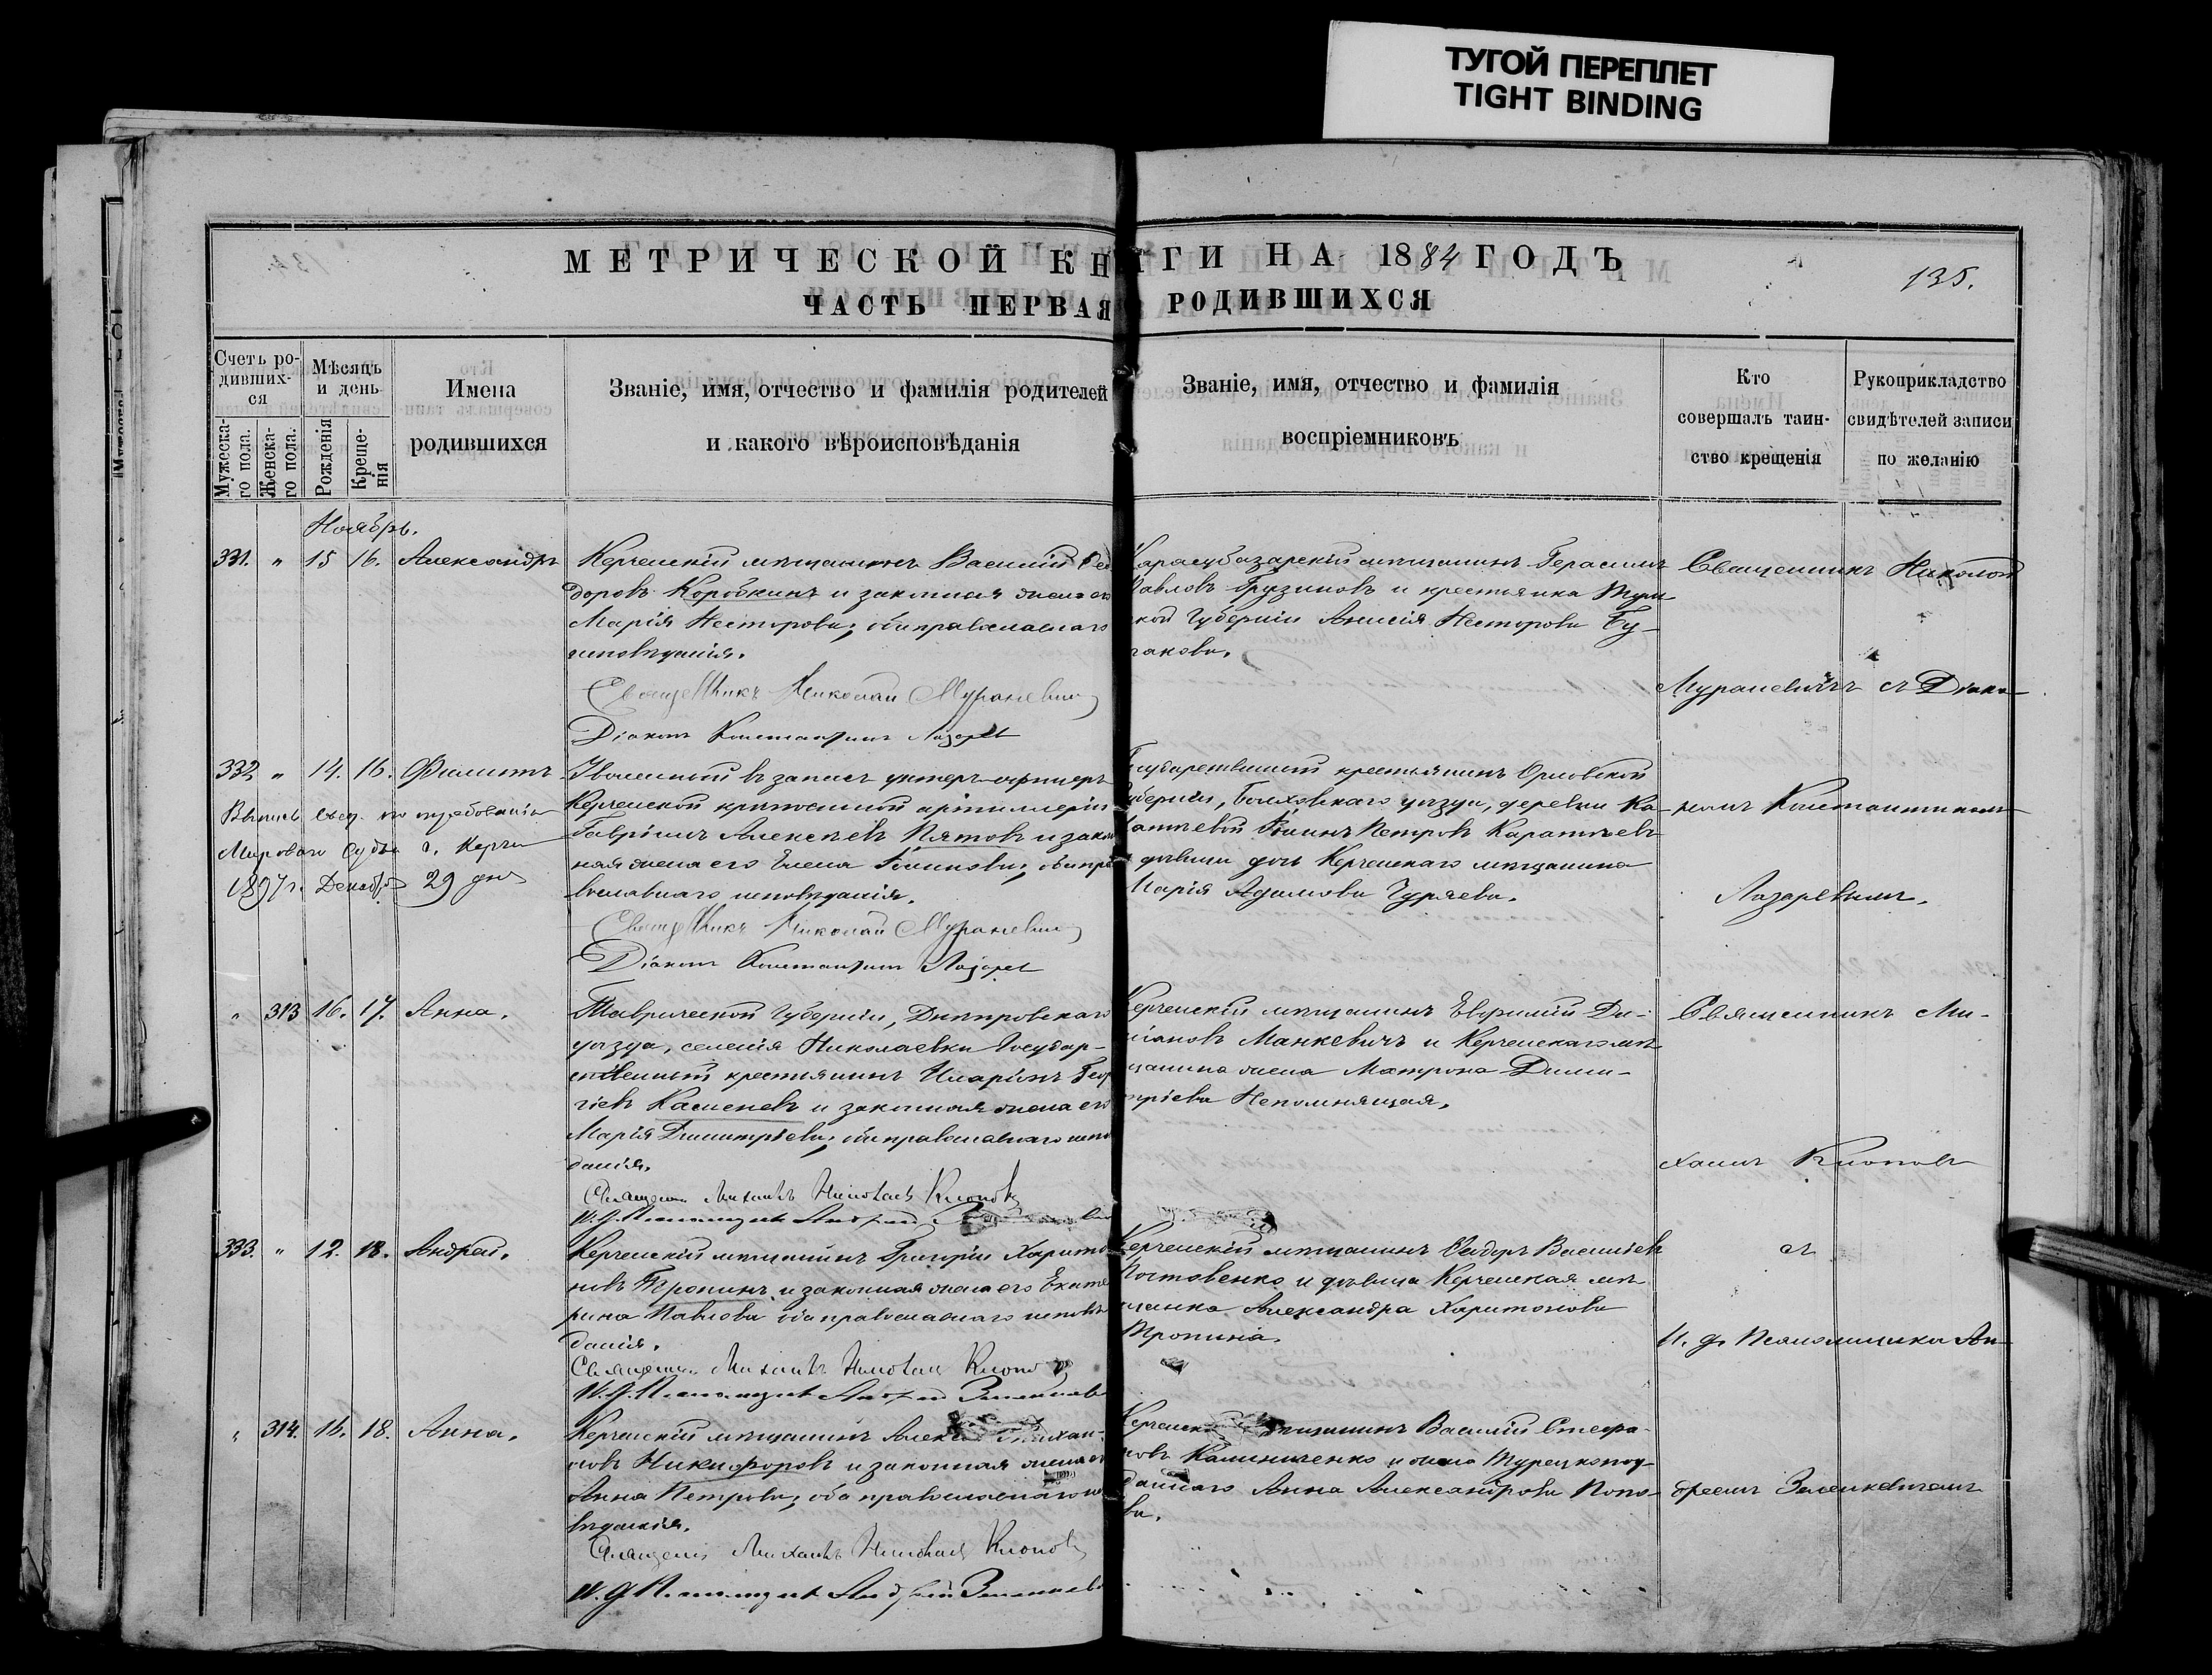 ТУГОЙ ПЕРЕПЛЕТ
TIGHT BINDING
МЕТРИЧЕСКОЙ КН ИГИ НА 1884 ГОДЪ
135.
ЧАСТЬ ПЕРВАЯ РОДИВШИХСЯ
Счетъ ро-
дивших-
ся
Мужеска-
го пола.
Женска-
го пола.
Мѣсяцъ
и день
Рожденія
Креще-
нія
Имена
родившихся
Званіе, имя, отчество и фамилія родителей
и какого вѣроисповѣданія
Званіе, имя, отчество и фамилія
воспріемниковъ
Кто
совершалъ таин-
ство крещенія
Рукоприкладство
свидѣтелей записи
по желанію
Ноябрь.
331. " 15 16. Александръ
Керченскій мѣщанинъ Василій Ѳео
доровъ Коробкинъ и законная жена его
Марія Несторова; оба православнаго
исповѣданія.
Священникъ Николай Мураневич
Діаконъ Константинъ Лазарев
Карасубазарскій мѣщанинъ Герасимъ
Павловъ Грузиновъ и крестьянка
ской Губерніи Анисія Несторова Бу-
гакова.
Священникъ Николай
Мураневичъ съ Діако-
332 " 14. 16. Филиппъ
Выпись выд. по требованію
Мироваго Судьи г. Керчи
1897 г. Декабря 29 дня
Уволенный въ запасъ унтеръ-офицеръ
Керченской крѣпостной артиллеріи
Гавріилъ Алексѣевъ Пятовъ и закон
ная жена его Елена Іоаннова; оба пра
вославнаго исповѣданія.
Священникъ Николай Мураневич
Діаконъ Константинъ Лазарев
Государственный крестьянинъ Орловской
Губерніи, Болховскаго уѣзда, деревни Ка-
Іоаннъ Петровъ Каратѣевъ
и дѣвица дочь Керченскаго мѣщанина
Марія Адамова Гуряева.
номъ Константиномъ
Лазаревымъ.
" 313 16. 17. Анна.
Таврической Губерніи, Днѣпровскаго
уѣзда, селенія Николаевки Государ-
ственный крестьянинъ Иларіонъ Геор
гіевъ Касменевъ и законная жена его
Марія Димитріева; оба православнаго испо
данія.
Священн Михаилъ Николаев Клопов
И. Д. Псаломщика Андрей
Керченскій мѣщанинъ Евфимій Да-
міановъ Манкевичъ и Керченскаго мѣ-
щанина жена Матрона Дими-
тріева Непомнящая.
Священникъ Ми-
хаилъ Клоповъ
333. " 12. 18. Андрей.
Керченскій мѣщанинъ Григорій Харито
новъ Тропинъ и законная жена его Екате
рина Павлова оба православнаго исповѣ
данія.
Священн Михаилъ Николаев Клопов
И. Д. Псаломщика Андрей Зеленкеви
Керченскій мѣщанинъ Ѳеодоръ Васильевъ
Постовенко и дѣвица Керченская мѣ-
щанка Александра Харитонова
Тропина
съ
И. д. Псаломщика Ан-
" 314. 16. 18. Анна.
Керченскій мѣщанинъ
новъ Никифоровъ и законная жена его
Анна Петрова; оба православнаго ис
вѣданія.
Священн Михаилъ Николаев Клопов
И. Д. Псаломщика Андрей Зеленкеви
Керченскій мѣщанинъ Василій Стефа-
новъ Калиниченко и жена Турецкопод-
даннаго Анна Александрова Попо-
ва.
дреемъ Зеленкевичемъ